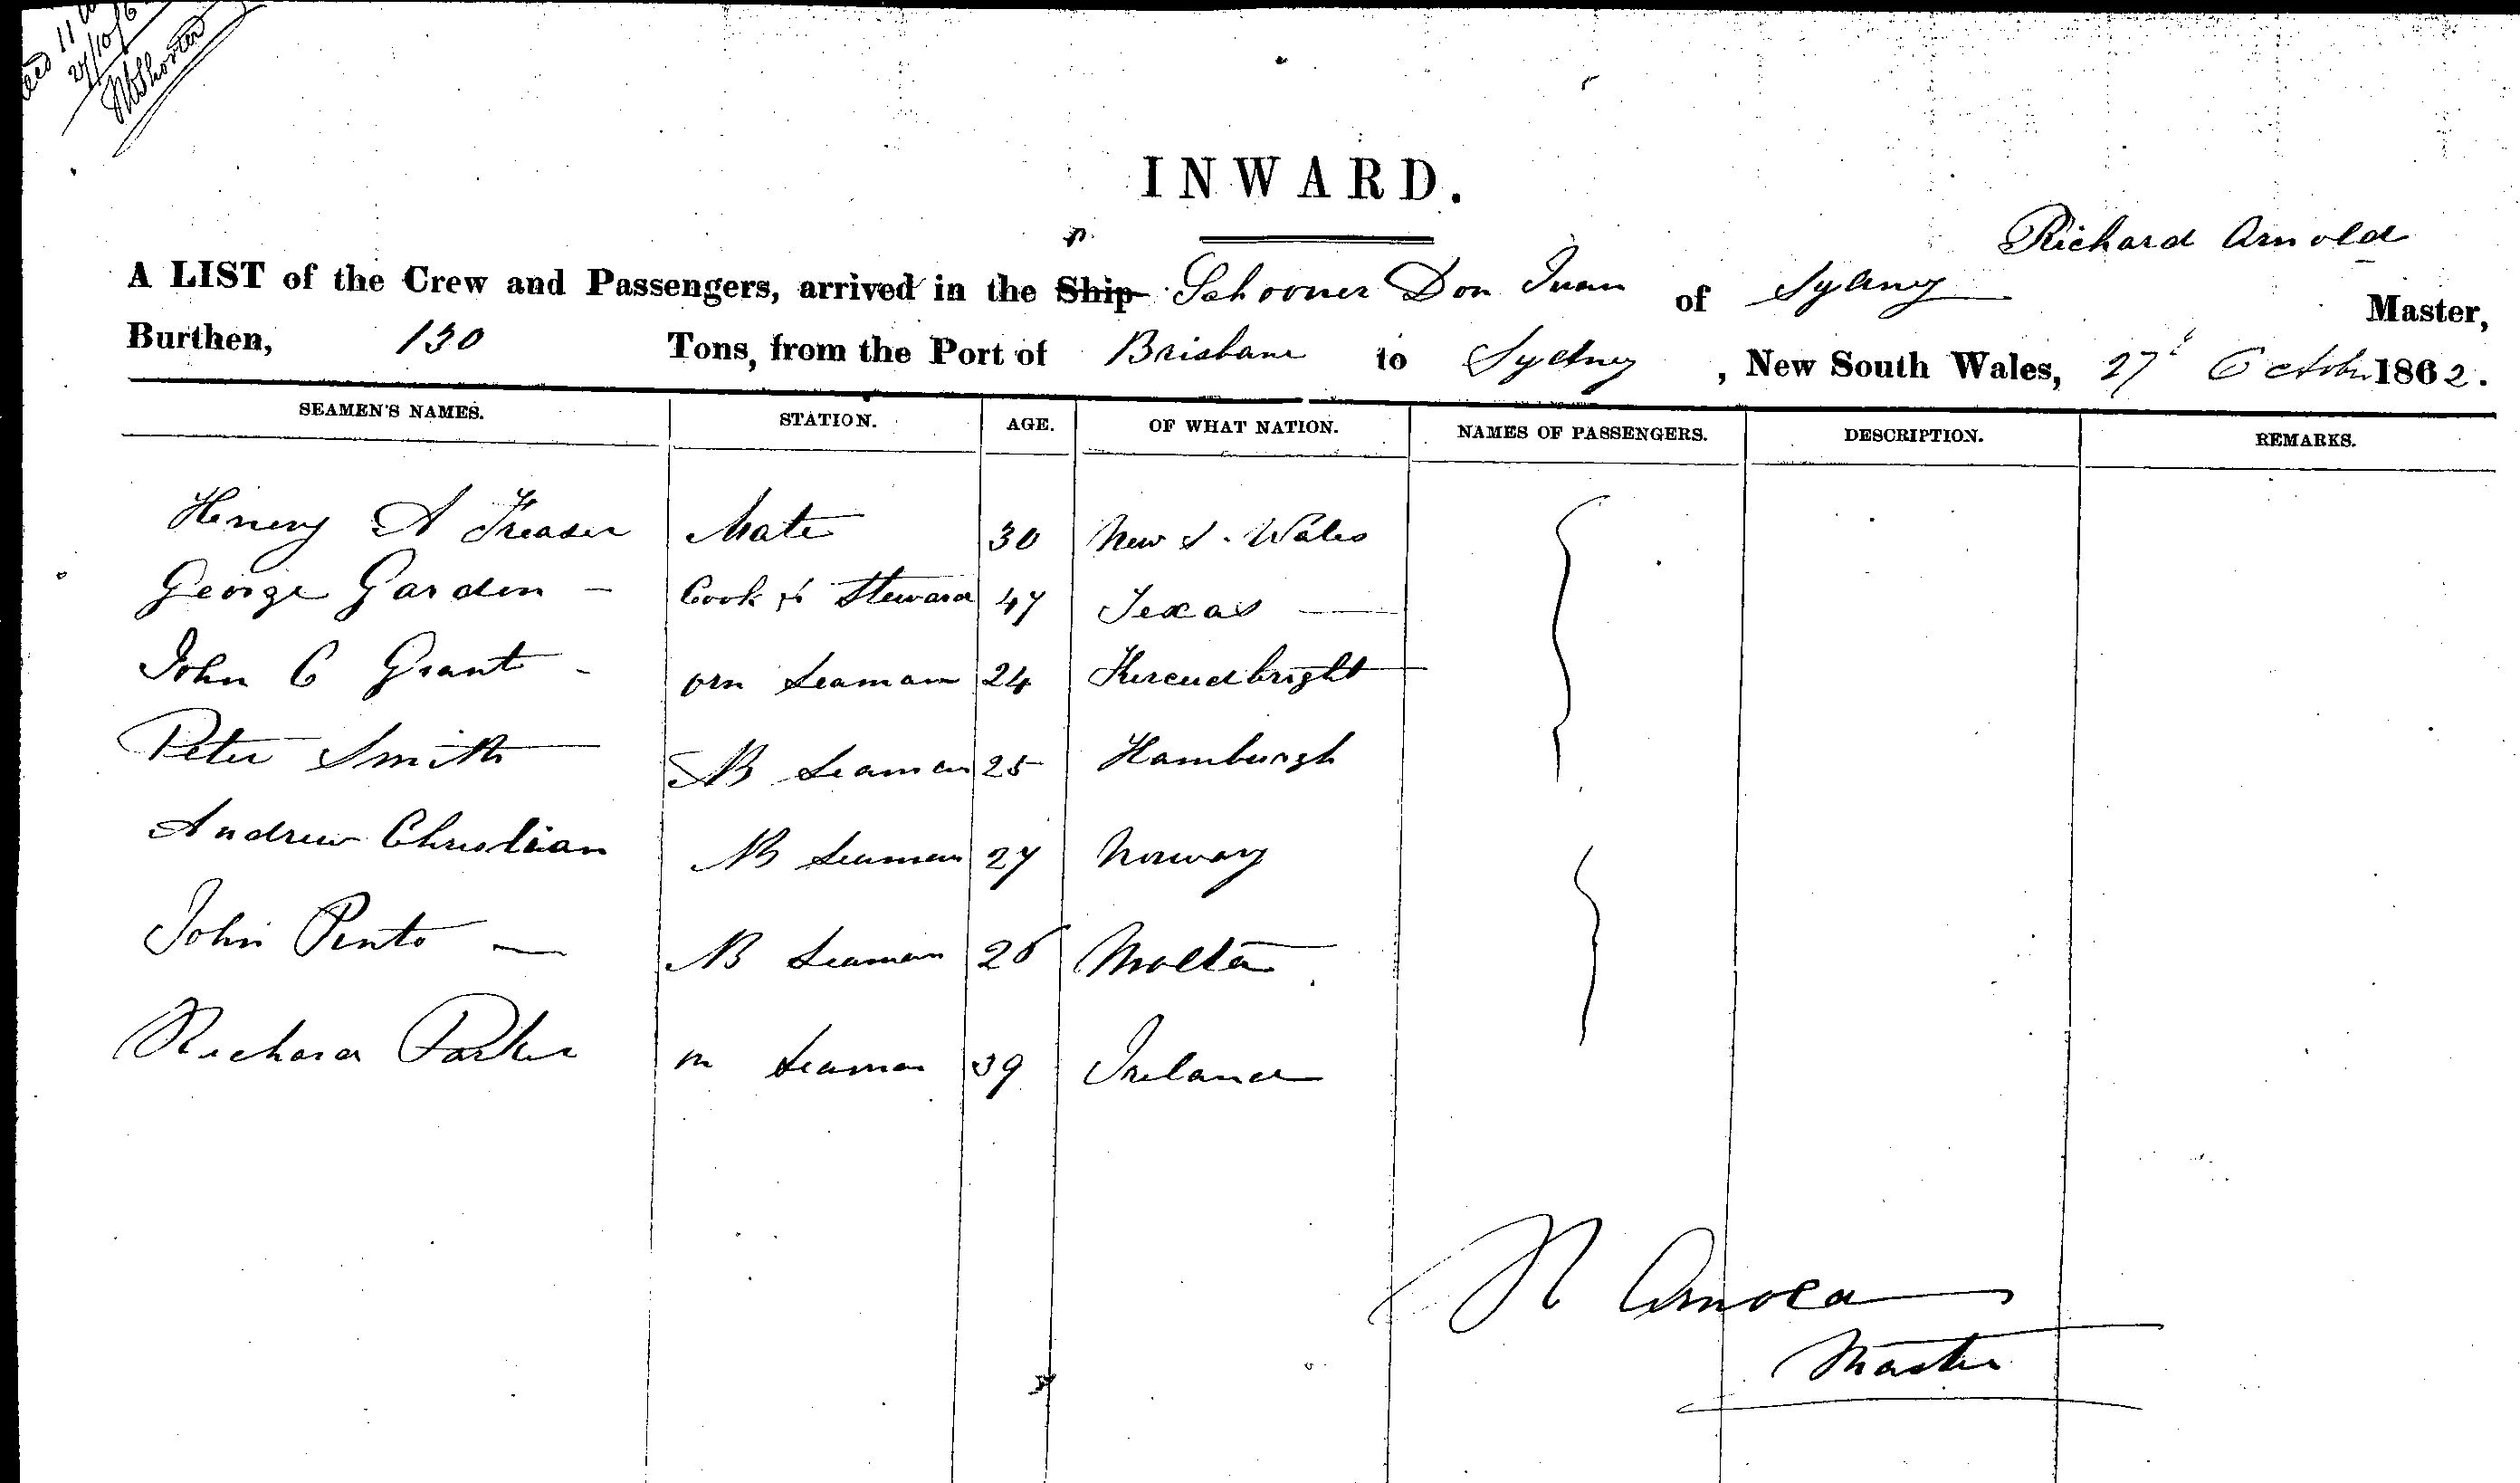 27/10/6
INWARD.
Richard Arnold
A LIST of the Crew and Passengers, arrived in the Ship Schooner Don Juan of Sydney Master,
Burthen, 130 Tons, from the Port of Brisbane to Sydney, New South Wales, 27th October 1862.
SEAMEN'S NAMES. STATION. AGE. OF WHAT NATION. NAMES OF PASSENGERS. DESCRIPTION. REMARKS.
Henery A Freaser Mate 30 New S. Wales
George Garden - Cook & Steward 47 Texas
John C Grant - orn Seaman 24 Kircudbright
Peter Smith AB Seaman 25 Hamburgh
Andrew Christian AB Seaman 27 Norway
John Pinto - AB Seaman Malta
Richard Parker Seaman 39 Ireland
R Arnold
Master